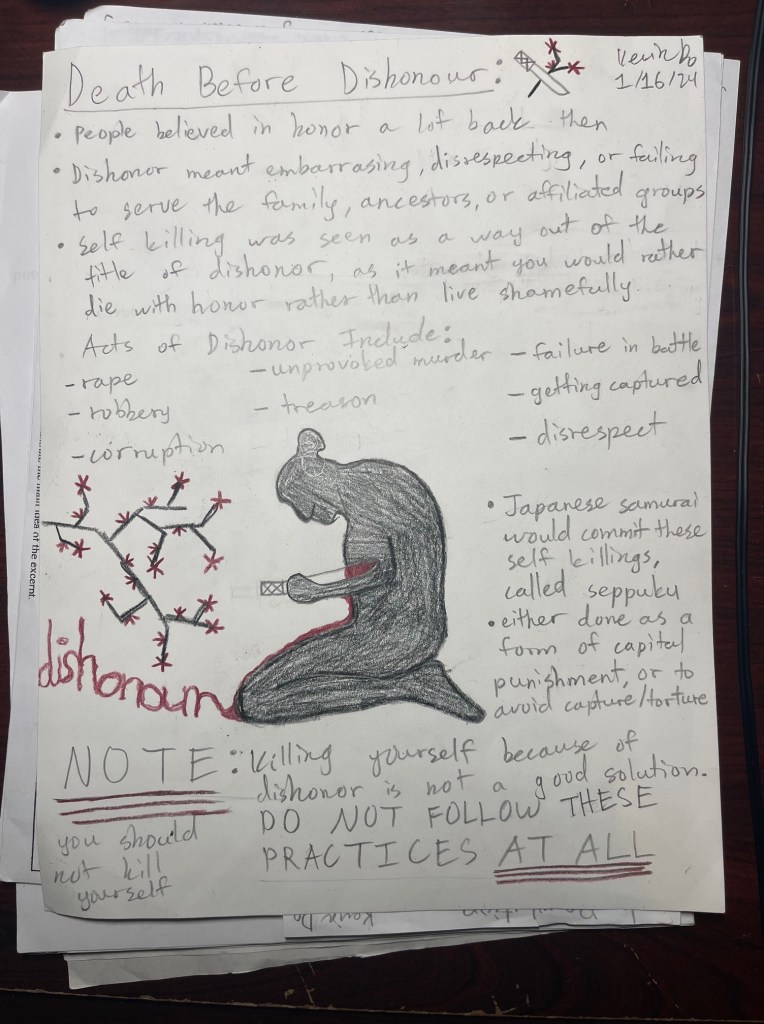 Death Before Dishonour:
Kevin Do
1/16/24
• People believed in honor a lot back then
• Dishonor meant embarrasing, disrespecting, or failing
to serve the family, ancestors, or affiliated groups
• Self killing was seen as a way out of the
title of dishonor, as it meant you would rather
die with honor rather than live shamefully.
Acts of Dishonor Include:
- rape
- robbery
- corruption
- unprovoked murder
- treason
- failure in battle
- getting captured
- disrespect
• Japanese samurai
would commit these
self killings,
called seppuku
• either done as a
form of capital
punishment, or to
avoid capture/torture
dishonour
NOTE: Killing yourself because of
dishonor is not a good solution.
DO NOT FOLLOW THESE
PRACTICES AT ALL
you should
not kill
yourself
the main idea of the excerpt.
Kevin Do